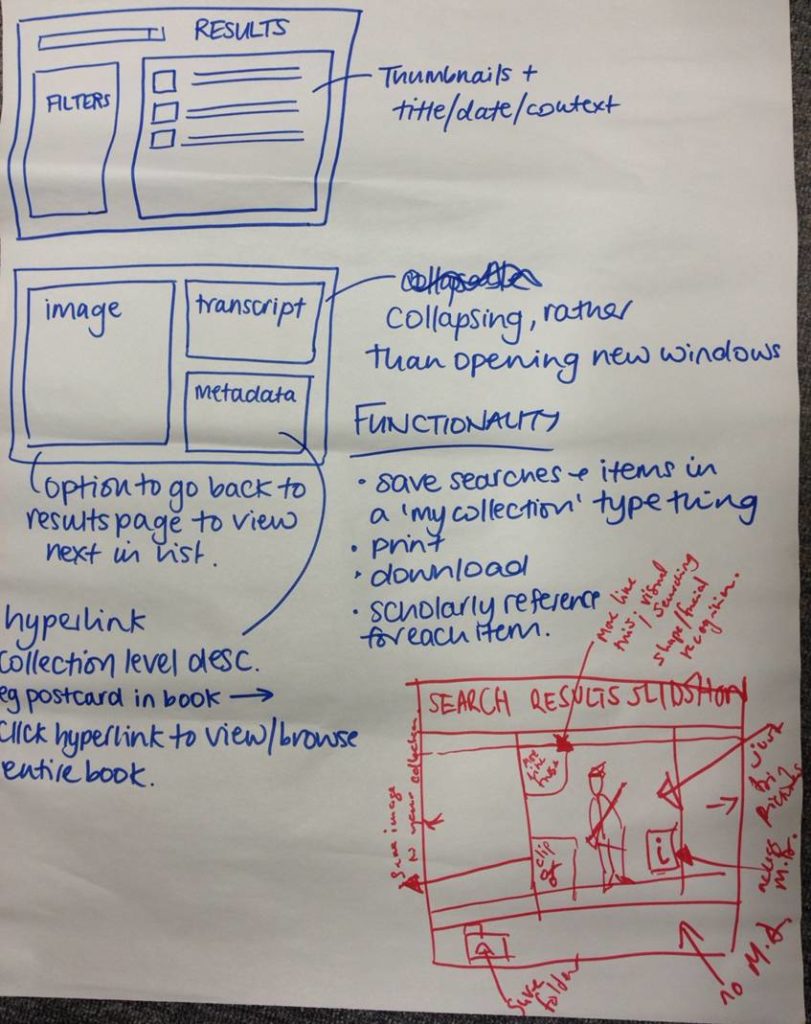 RESULTS
FILTERS
Thumbnails +
title/date/context
image
transcript
metadata
collapsing, rather
than opening new windows
FUNCTIONALITY
option to go back to
results page to view
next in list.
• save searches + items in
a 'my collection' type thing
• print
• download
• scholarly reference
for each item.
hyperlink
collection level desc.
eg postcard in book →
click hyperlink to view/browse
entire book.
More like
this/visual
searching
shape/facial
recognition.
SEARCH RESULTS SLIDSHOW
More
like
this
save image
to your collection
clip
i
access
M.D.
save
folder
no M.D.